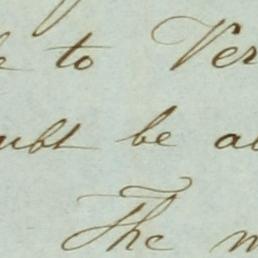 e to Ver
ubt be a
The